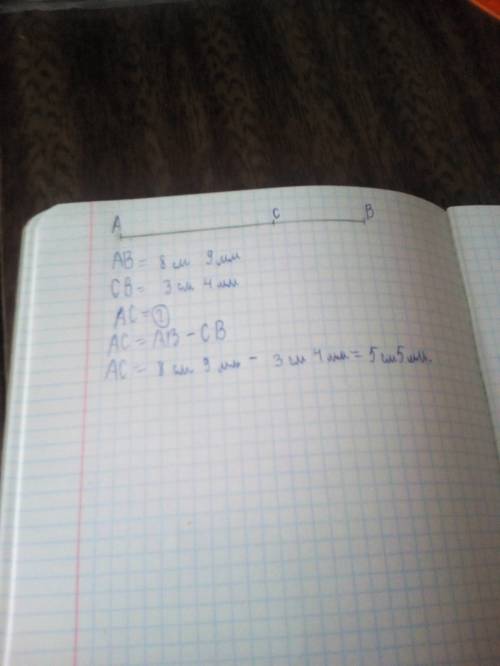 A C B
AB = 8 см 9 мм
CB = 3 см 4 мм
AC = ?
AC = AB - CB
AC = 8 см 9 мм - 3 см 4 мм = 5 см 5 мм.